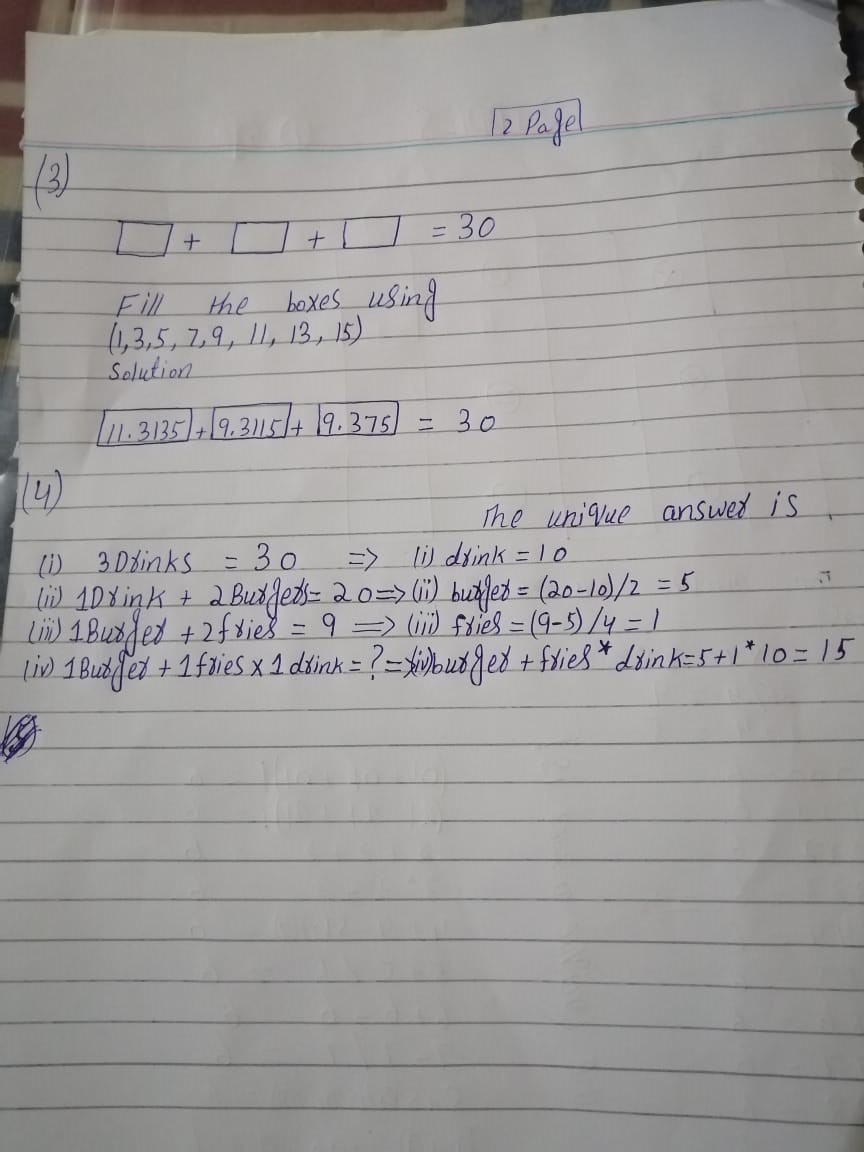 2 Page
(3)
□ + □ + □ = 30
Fill the boxes using
(1,3,5, 7,9, 11, 13, 15)
Solution
11.3135 + 9.3115 + 9.375 = 30
(4)
The unique answer is
(i) 3Drinks = 30 => (i) drink = 10
(ii) 1Drink + 2Burgers = 20 => (ii) burger = (20-10)/2 = 5
(iii) 1Burger + 2fries = 9 => (iii) fries = (9-5)/4 = 1
(iv) 1Burger + 1fries x 1drink = ? => (iv) burger + fries * drink = 5+1*10 = 15